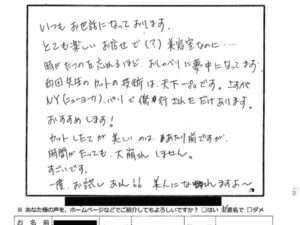 いつもお世話になっております。
とても楽しいお店で(?)美容室なのに…
時がたつのを忘れるほど、おしゃべりに夢中になってます。
先生のカットの技術は、天下一品です。さすが
NY(ニューヨーク)、パリで修行されただけあります。
おすすめします!
カットしたてが美しいのはあたり前ですが、
時間がたっても、大崩れしません。
すごいです。
一度、お試しあれ!! 美人になれますよ〜
※ あなた様の声を、ホームページなどでご紹介してもよろしいですか? □はい □匿名で □ダメ
お名前